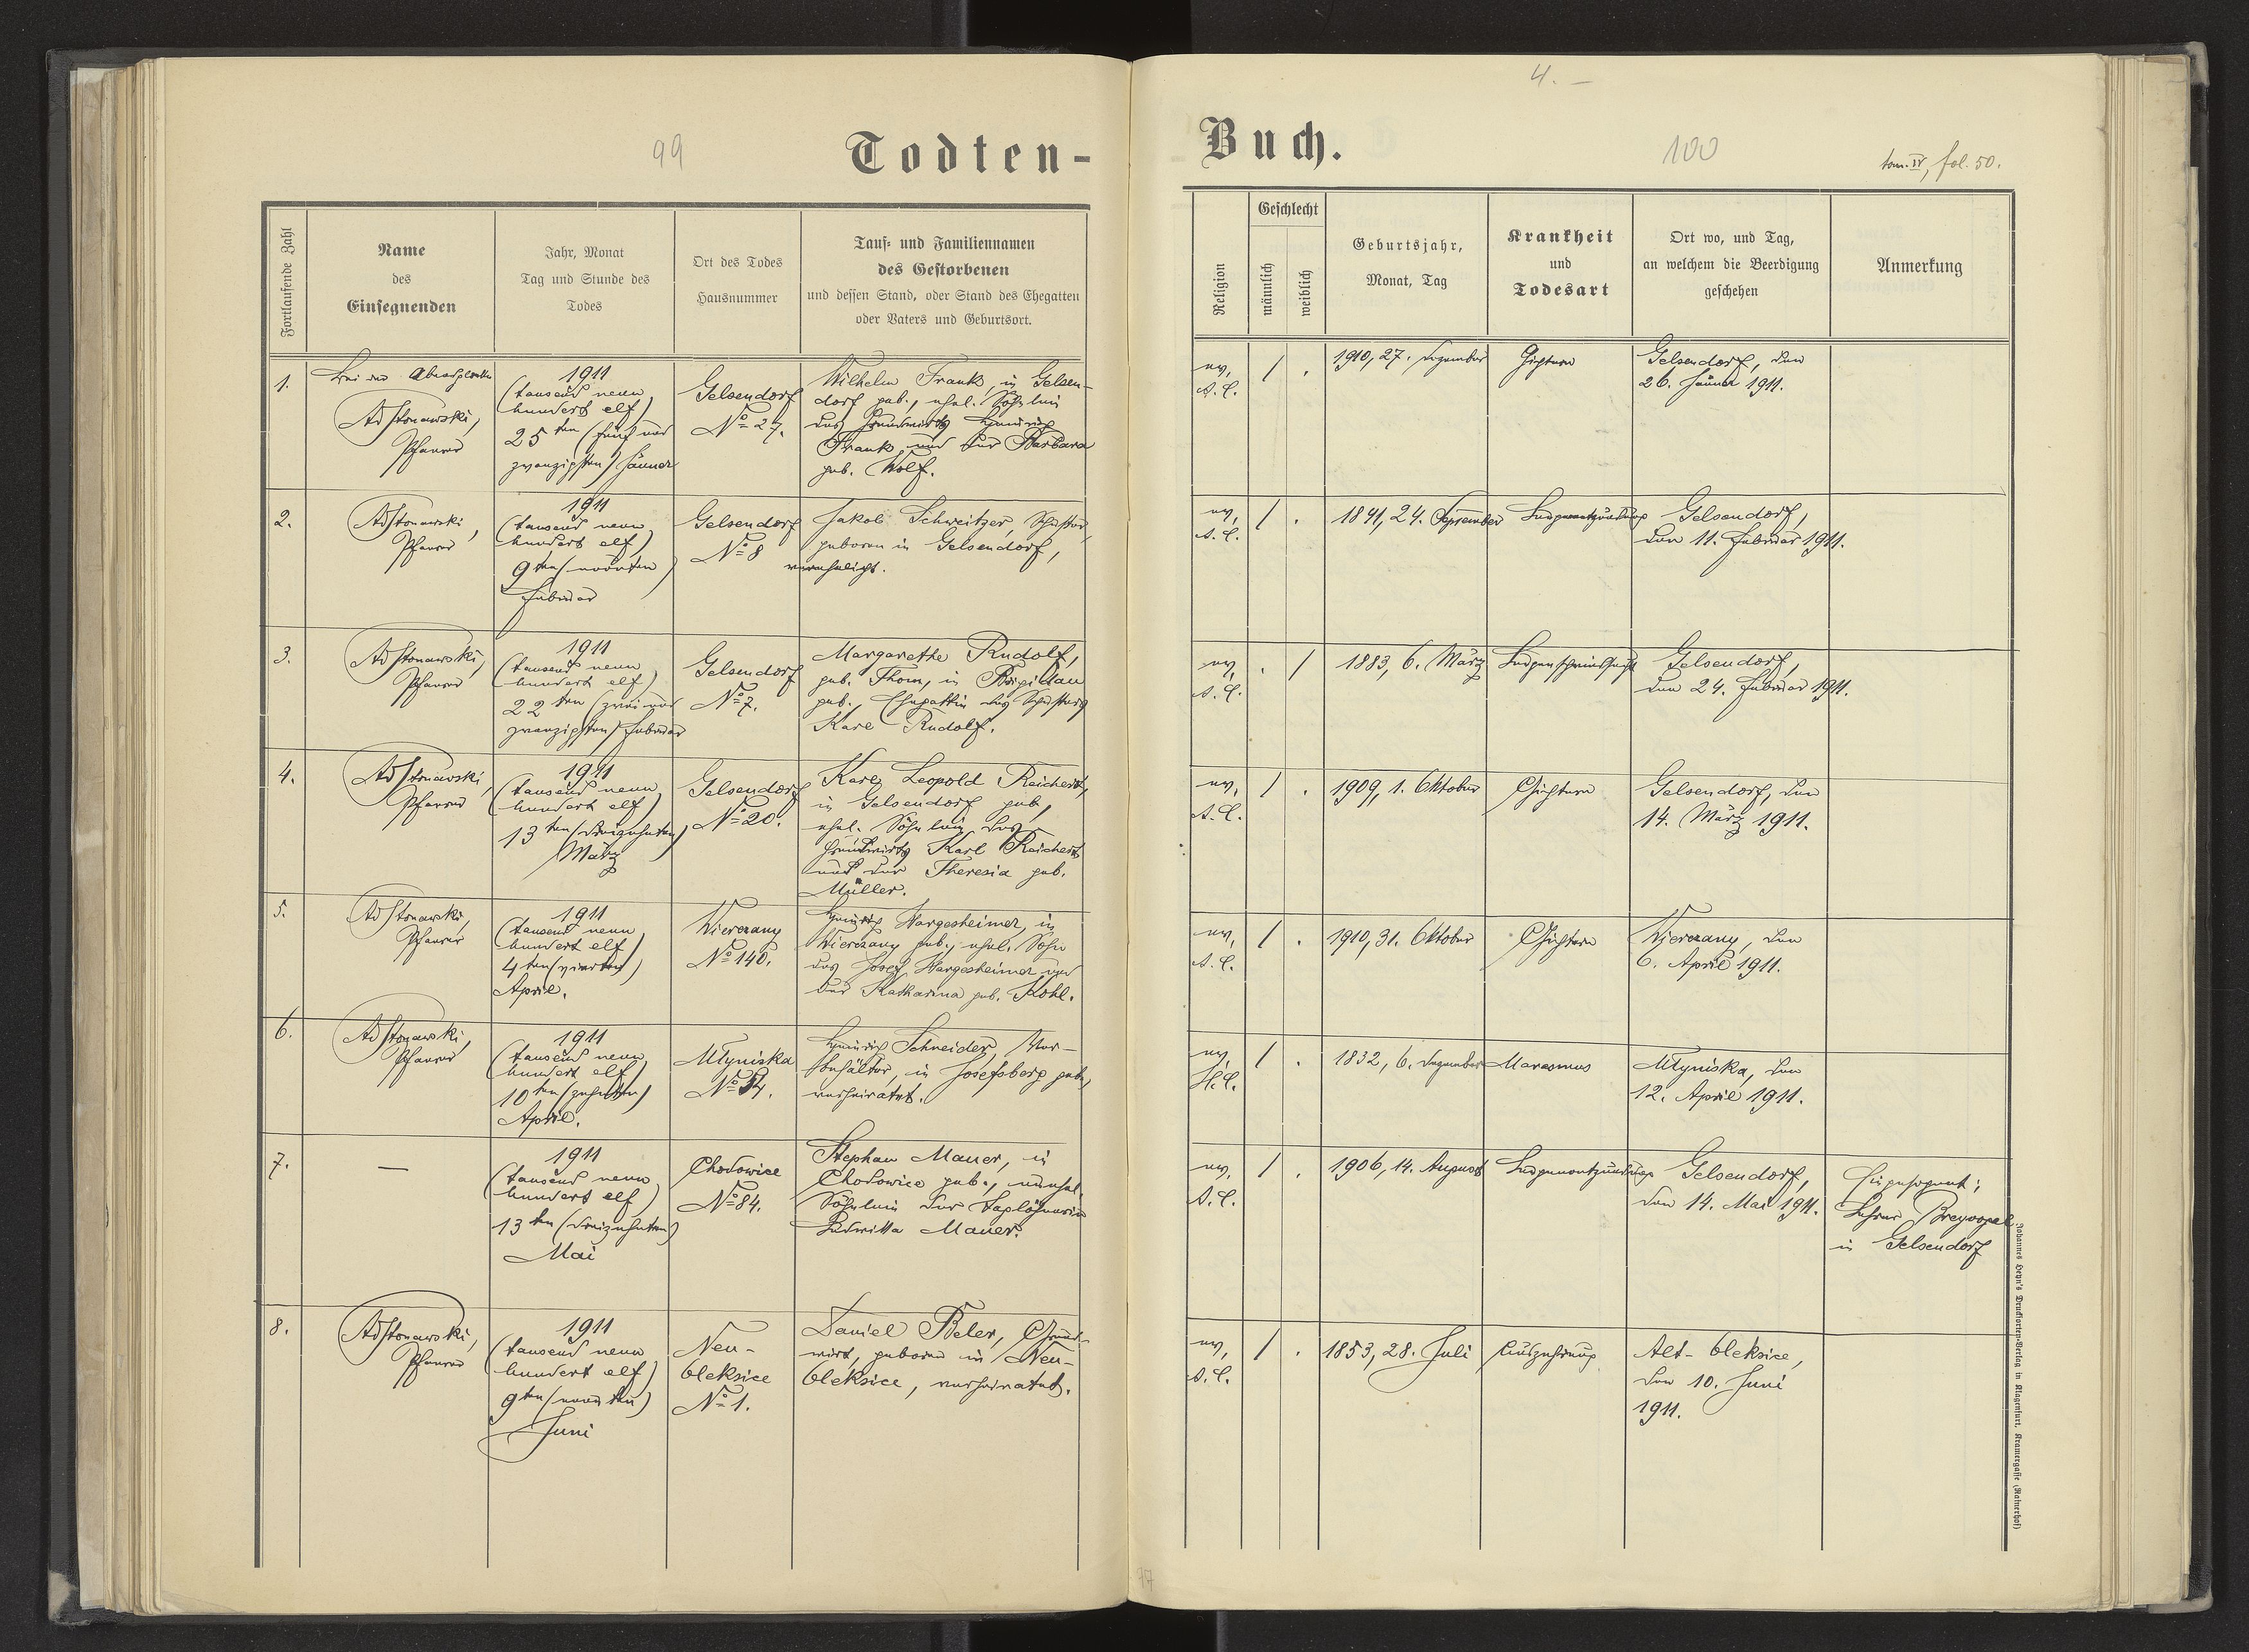 4. –
99
Todten-
Buch.
100
tom. IV, fol. 50.
Fortlaufende Zahl
Name
des
Einsegnenden
Jahr, Monat
Tag und Stunde des
Todes
Ort des Todes
Hausnummer
Tauf- und Familiennamen
des Gestorbenen
und dessen Stand, oder Stand des Ehegatten
oder Vaters und Geburtsort.
Religion
Geschlecht
männlich
weiblich
Geburtsjahr,
Monat, Tag
Krankheit
und
Todesart
Ort wo, und Tag,
an welchem die Beerdigung
geschehen
Anmerkung
1.
Pfarrer
1911
(tausend neun
hundert elf)
25ten (fünf und
zwanzigsten) Jänner
Gelsendorf
No 27.
Wilhelm Frank, in Gelsen-
dorf geb., ehel. Söhnlein
des Grundwirts Heinrich
Frank und der Barbara
geb. Wolf.
ev.
A. C.
/ .
1910, 27. Dezember
Gichtern
Gelsendorf, den
26. Jänner 1911.
2.
Pfarrer
1911
(tausend neun
hundert elf)
9ten (neunten)
Februar
Gelsendorf
No 8
Jakob Schweitzer, Schuster,
geboren in Gelsendorf,
verehelicht.
ev.
A. C.
/ .
1841, 24. September
Lungenentzündung
Gelsendorf,
den 11. Februar 1911.
3.
Pfarrer
1911
(tausend neun
hundert elf)
22ten (zwei und
zwanzigsten) Februar
Gelsendorf
No 7.
Margarethe Rudolf,
geb. Thom, in Brigidau
geb. Ehegattin des Schusters
Karl Rudolf.
ev.
A. C.
. /
1883, 6. März
Lungenschwindsucht
Gelsendorf,
den 24. Februar 1911.
4.
Pfarrer
1911
(tausend neun
hundert elf)
13ten (dreizehnten)
März
Gelsendorf
No 20.
Karl Leopold Reichert,
in Gelsendorf geb.,
ehel. Söhnlein des
Grundwirts Karl Reichert
und der Theresia geb.
Müller.
ev.
A. C.
/ .
1909, 1. Oktober
Gichtern
Gelsendorf, den
14. März 1911.
5.
Pfarrer
1911
(tausend neun
hundert elf)
4ten (vierten)
April.
Wierczany
No 140.
Heinrich Hargesheimer, in
Wierczany geb., ehel. Sohn
des Josef Hargesheimer und
der Katharina geb. Kohl.
ev.
A. C.
/ .
1910, 31. Oktober
Gichtern
Wierczany, den
6. April 1911.
6.
Pfarrer
1911
(tausend neun
hundert elf)
10ten (zehnten)
April.
Młyniska
Heinrich Schneider, Vor-
behälter, in Josefsberg geb.,
verheiratet.
ev.
H. C.
/ .
1832, 6. Dezember
Marasmus
Młyniska, den
12. April 1911.
7.
—
1911
(tausend neun
hundert elf)
13ten (dreizehnten)
Mai
Chodowice
No 84.
Stephan Mauer, in
Chodowice geb., unehel.
Söhnlein der Taglöhnerin
Ludwika Mauer.
ev.
A. C.
/ .
1906, 14. August
Lungenentzündung
Gelsendorf,
den 14. Mai 1911.
Eingesegnet:
Lehrer
in Gelsendorf
8.
Pfarrer
1911
(tausend neun
hundert elf)
9ten (neunten)
Juni
Neu-
Oleksice
No 1.
Daniel Beler, Grund-
wirt, geboren in Neu-
Oleksice, verheiratet.
ev.
A. C.
/ .
1853, 28. Juli
Auszehrung
Alt-Oleksice,
den 10. Juni
1911.
Johannes Heyn's Drucksorten-Verlag in Klagenfurt, Kramergasse (Rainerhof)
77